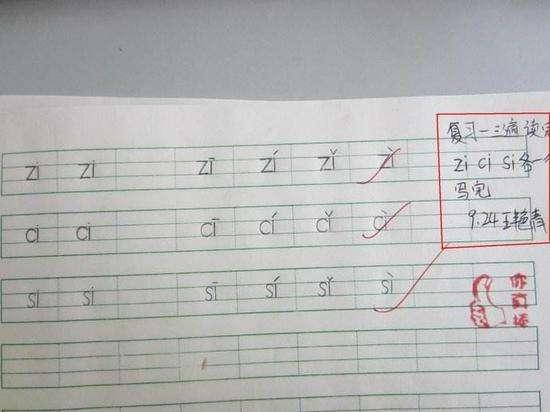 zi zi zī zí zǐ zì
ci ci cī cí cǐ cì
si si sī sí sǐ sì
复习一三遍 读完
zi ci si各一行
写完
9.24 王艳青
你真棒